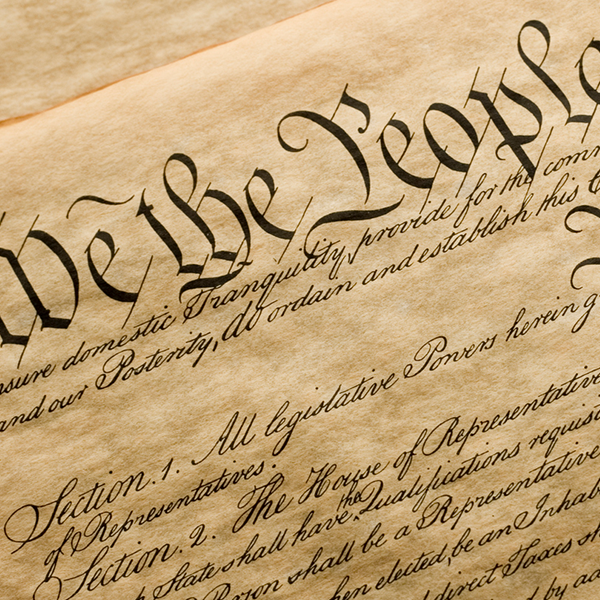 We the People
nsure domestic Tranquility, provide for the comm
and our Posterity, do ordain and establish this C
Section. 1. All legislative Powers herein g
of Representatives.
Section. 2. The House of Representative
the
h State shall have Qualifications requisi
Person shall be a Representative
hen elected, be an Inhab
direct Taxes sh
by ad